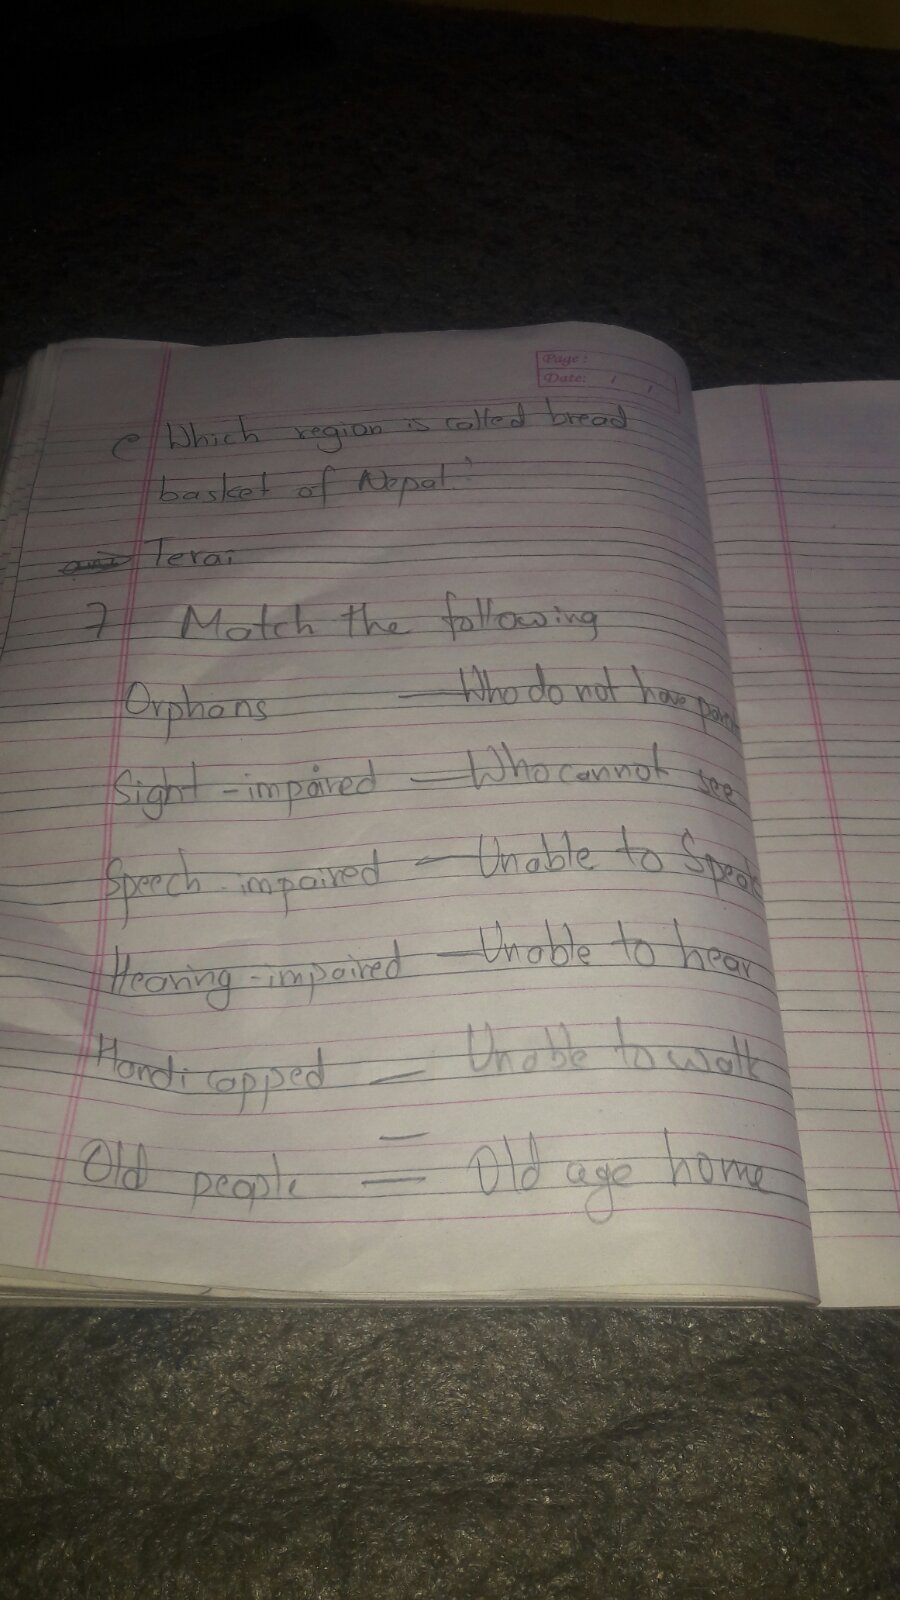 Page:
Date: / /
e Which region is called bread
basket of Nepal?
Terai
7 Match the following
Orphans — Who do not have
Sight-impaired — Who cannot see
Speech-impaired — Unable to Speak
Hearing-impaired — Unable to hear
Handicapped — Unable to walk
Old people — Old age home